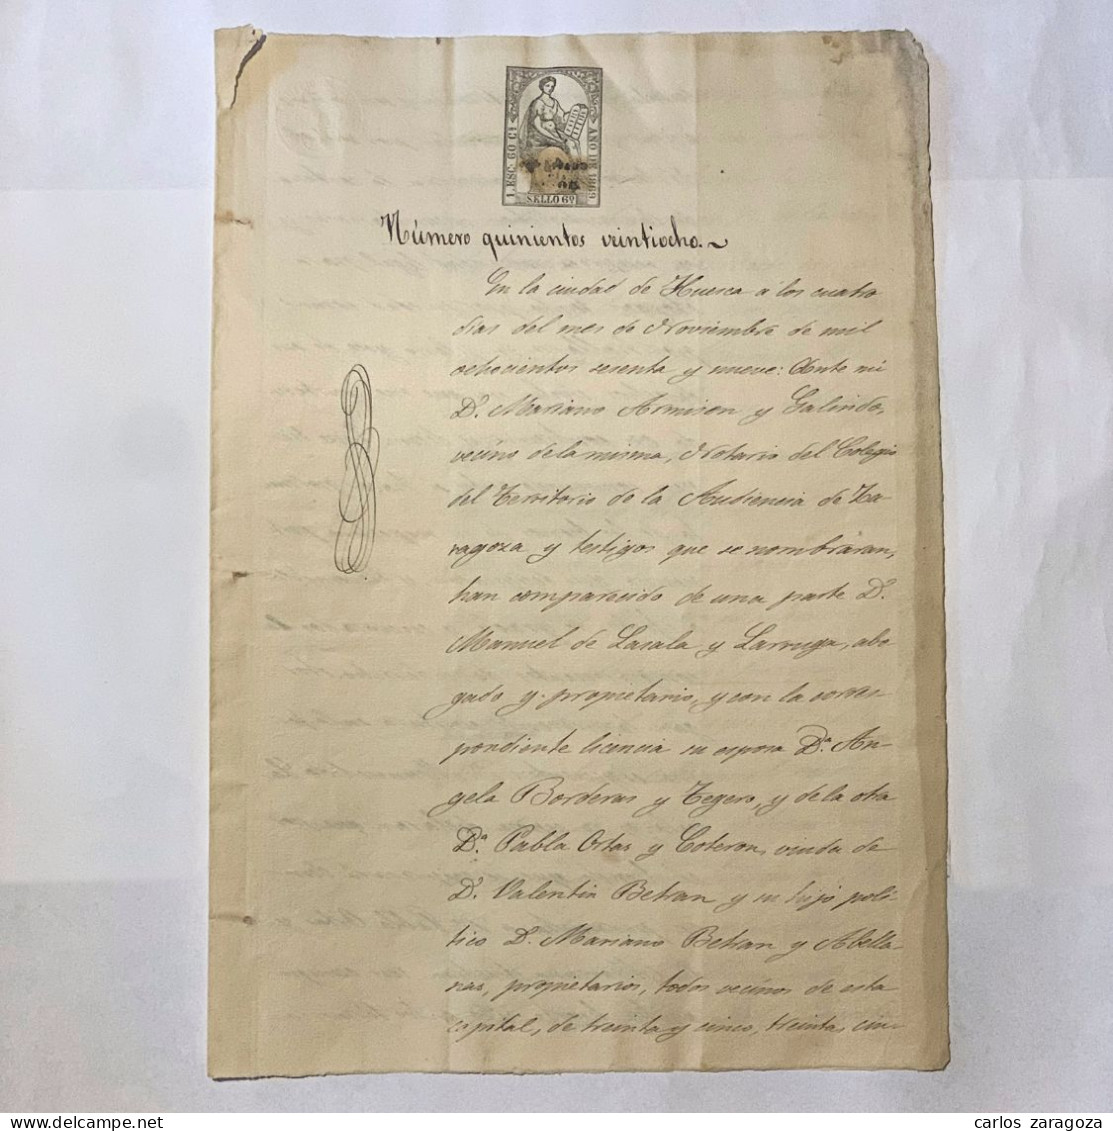 1 ESC. 60 Ct
AÑO DE 1869
SELLO 6º
Número quinientos veintiocho.
En la ciudad de Huesca á los cuatro
dias del mes de Noviembre de mil
ochocientos sesenta y nueve: Ante mi
Dⁿ. Mariano Armison y Galindo,
vecino de la misma, Notario del Colegio
del Territorio de la Audiencia de Za-
ragoza y testigos que se nombráran,
han comparecido de una parte Dⁿ.
Manuel de Lasala y Larruga, abo
gado y propietario, y con la corres
pondiente licencia su esposa Dª. An-
gela Borderas y Tegero, y de la otra
Dª. Pabla Ortas y Coteron, viuda de
Dⁿ. Valentin Betran y su hijo polí-
tico Dⁿ. Mariano Betran y Abella-
nas, propietarios, todos vecinos de esta
capital, de treinta y cinco, treinta, cin-
carlos zaragoza